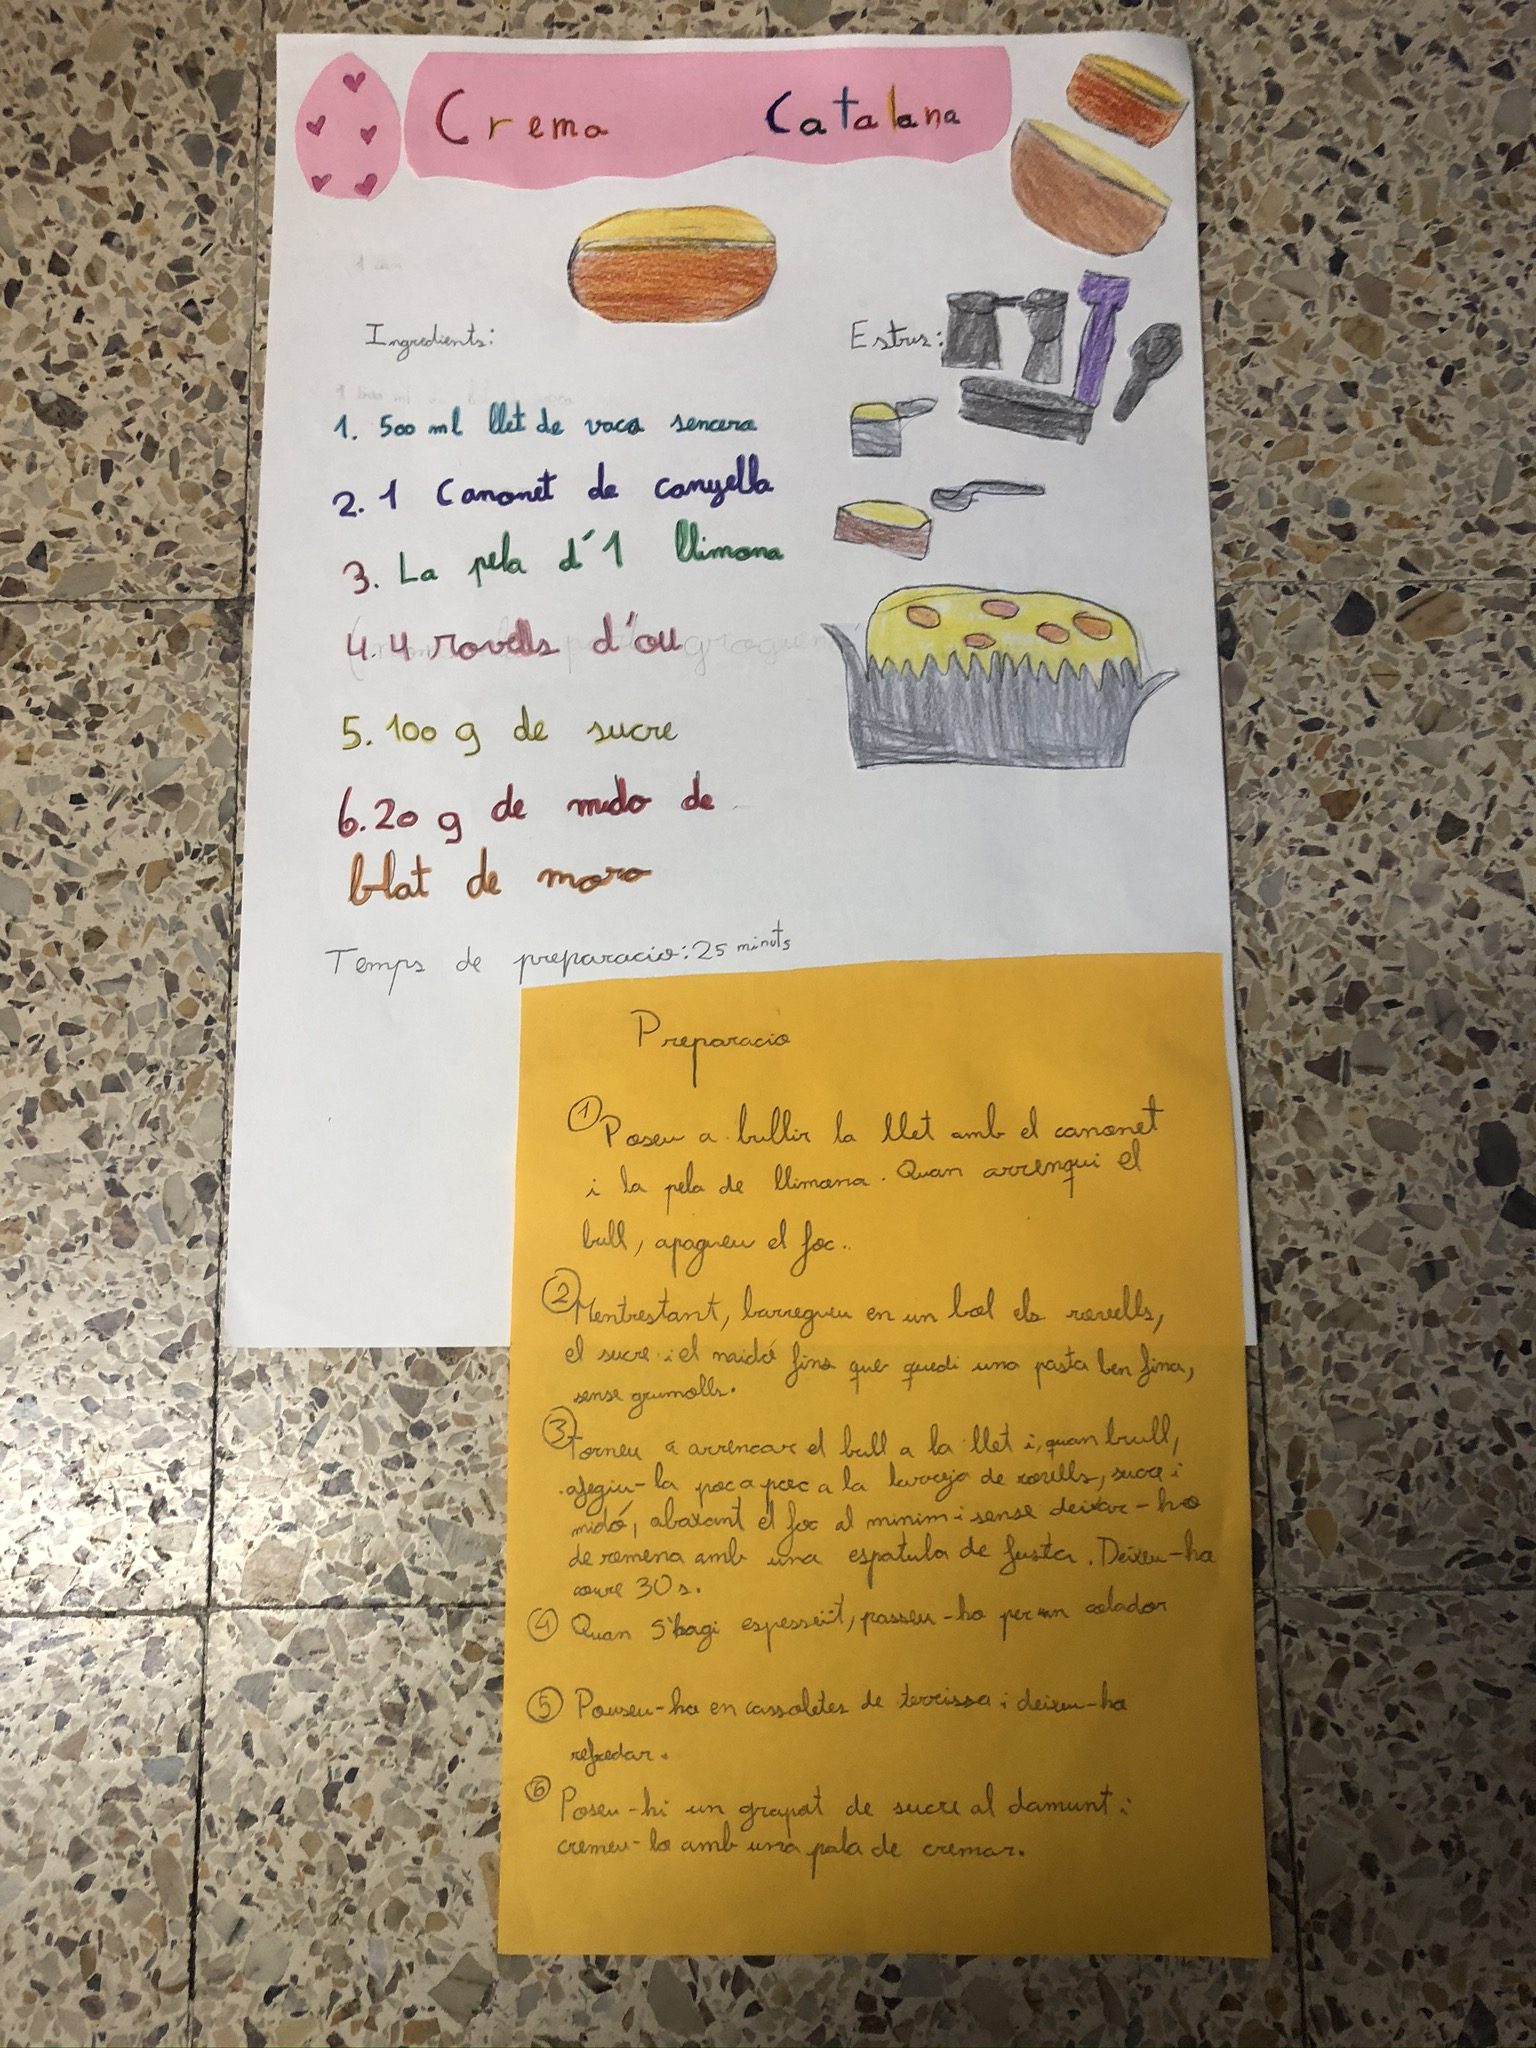 Crema Catalana
Ingredients:
Estris:
1. 500 ml llet de vaca sencera
2. 1 Canonet de canyella
3. La pela d'1 llimona
4. 4 rovells d'ou
5. 100 g de sucre
6. 20 g de mido de
blat de moro
Temps de preparacio: 25 minuts
Preparacio
1 Poseu a bullir la llet amb el canonet
i la pela de llimona. Quan arrenqui el
bull, apagueu el foc..
2 Mentrestant, barregueu en un bol els rovells,
el sucre i el maidó fins que quedi una pasta ben fina,
sense grumolls.
3 Torneu a arrencar el bull a la llet i, quan bull,
afegiu-la poc a poc a la barreja de rovells, sucre i
midó, abaxant el foc al minim i sense deixar-ho
de remena amb una espatula de fusta. Deixeu-ho
coure 30 s.
4 Quan s'hagi espesseït, passeu-ho per un colador
5 Pouseu-ho en cassoletes de terrissa i deixeu-ho
refredar.
6 Poseu-hi un grapat de sucre al damunt i
cremeu-lo amb una pala de cremar.